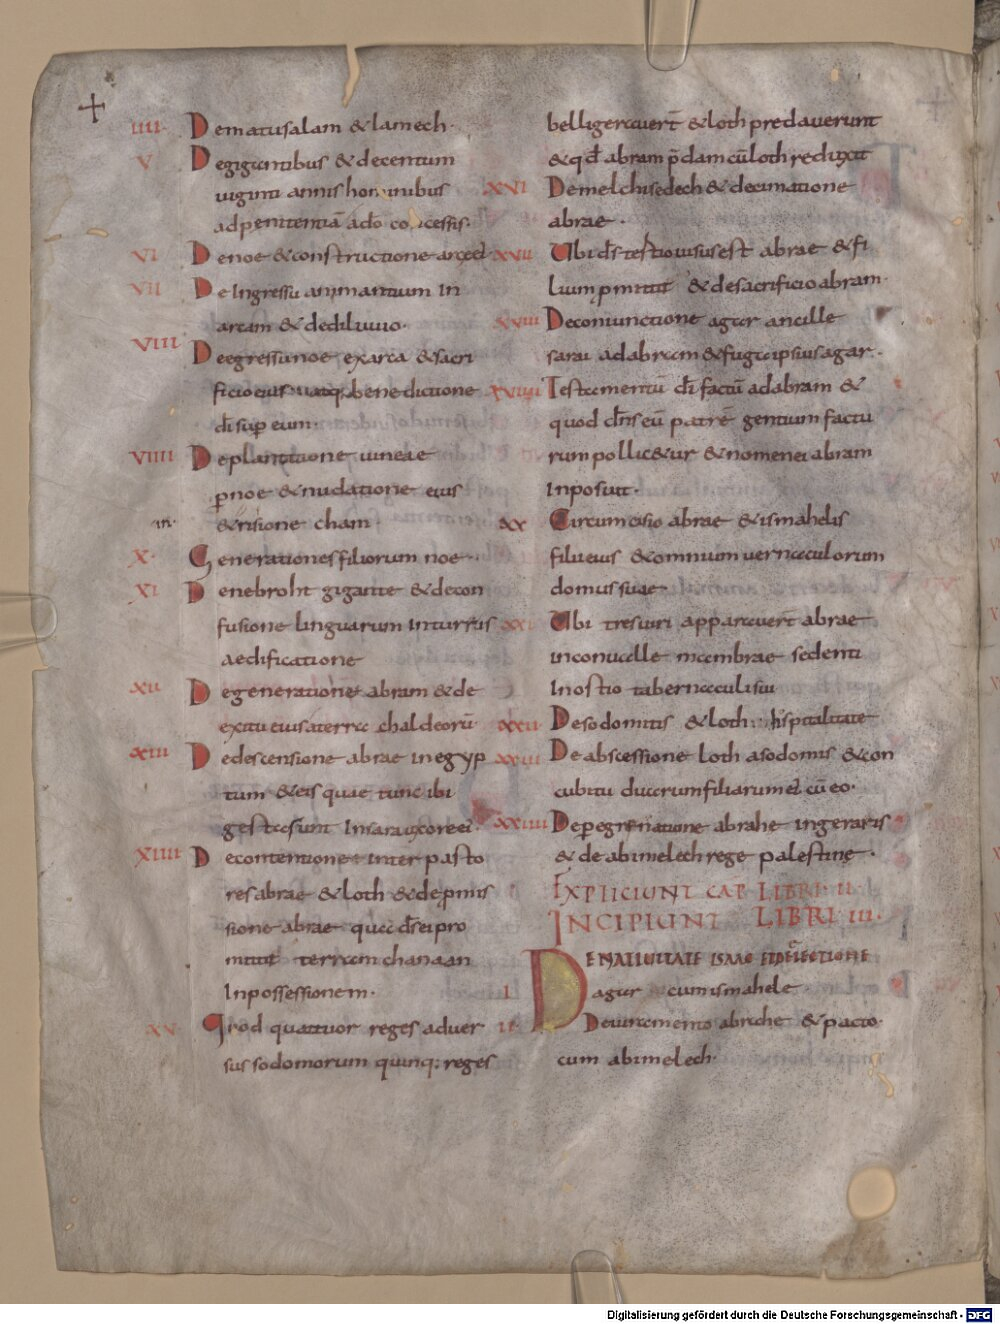 IIII. Dematusalam & lamech.
V Degigantibus & decentum
uiginti annis hominibus
adpenitentiā ado concessis.
VI Denoe & constructione arcae
VII De Ingressu animantium In
arcam & dediluuio.
VIII Deegressu noe exarca & sacri
ficio eius benedictione
di sup eum.
VIIII Deplantatione uineae
pnoe & nudatione eius
& risione cham.
X. Generationes filiorum noe.
XI Denebroht gigante & decon
fusione linguarum Inturris
aedificatione
XII Degeneratione abram & de
exitu eius aterra chaldeorū
XIII Dedescensione abrae in egyp
tum & eis quae tunc ibi
gesta sunt Insarai
XIIII Decontentione inter pasto
res abrae & loth & depmis
sione abrae quae dsei pro
mittit terram chanaan
Inpossessionem.
XV Quod quattuor reges aduer
sus sodomorum quinq; reges
belligerauerт & loth predauerunt
& qd abram pdam cū loth reduxit
XVI Demelchisedech & decimatione
abrae.
XVII Ubi ds tertio uisus est abrae & fi
lium pmittit & desacrificio abram.
XVIII Deconiunctione agar ancille
sarai adabram & fuga ipsius agar.
XVIIII Testamentū di factū adabram &
quod dns eū patrē gentium factu
rum pollicetur & nomen ei abram
Inposuit.
XX Circumcisio abrae & ismahelis
filii eius & omnium uernaculorum
domus suae
XXI Ubi tres uiri apparuert abrae
inconualle mambrae sedenti
Inostio tabernaculi sui
XXII Desodomitis & loth hospitalitate
XXIII De abscessione loth asodomis & con
cubitu duarum filiarum ei cū eo.
XXIIII Deperegrinatione abrahe ingeraris
& de abimelech rege palestine.
EXPLICIUNT CAP LIBRI II
INCIPIUNT LIBRI III.
I DENATIUITATE ISAAC ET DEIECTIONE
agar cum ismahele
II Deiuramento abrahe & pacto
cum abimelech
Digitalisierung gefördert durch die Deutsche Forschungsgemeinschaft - DFG